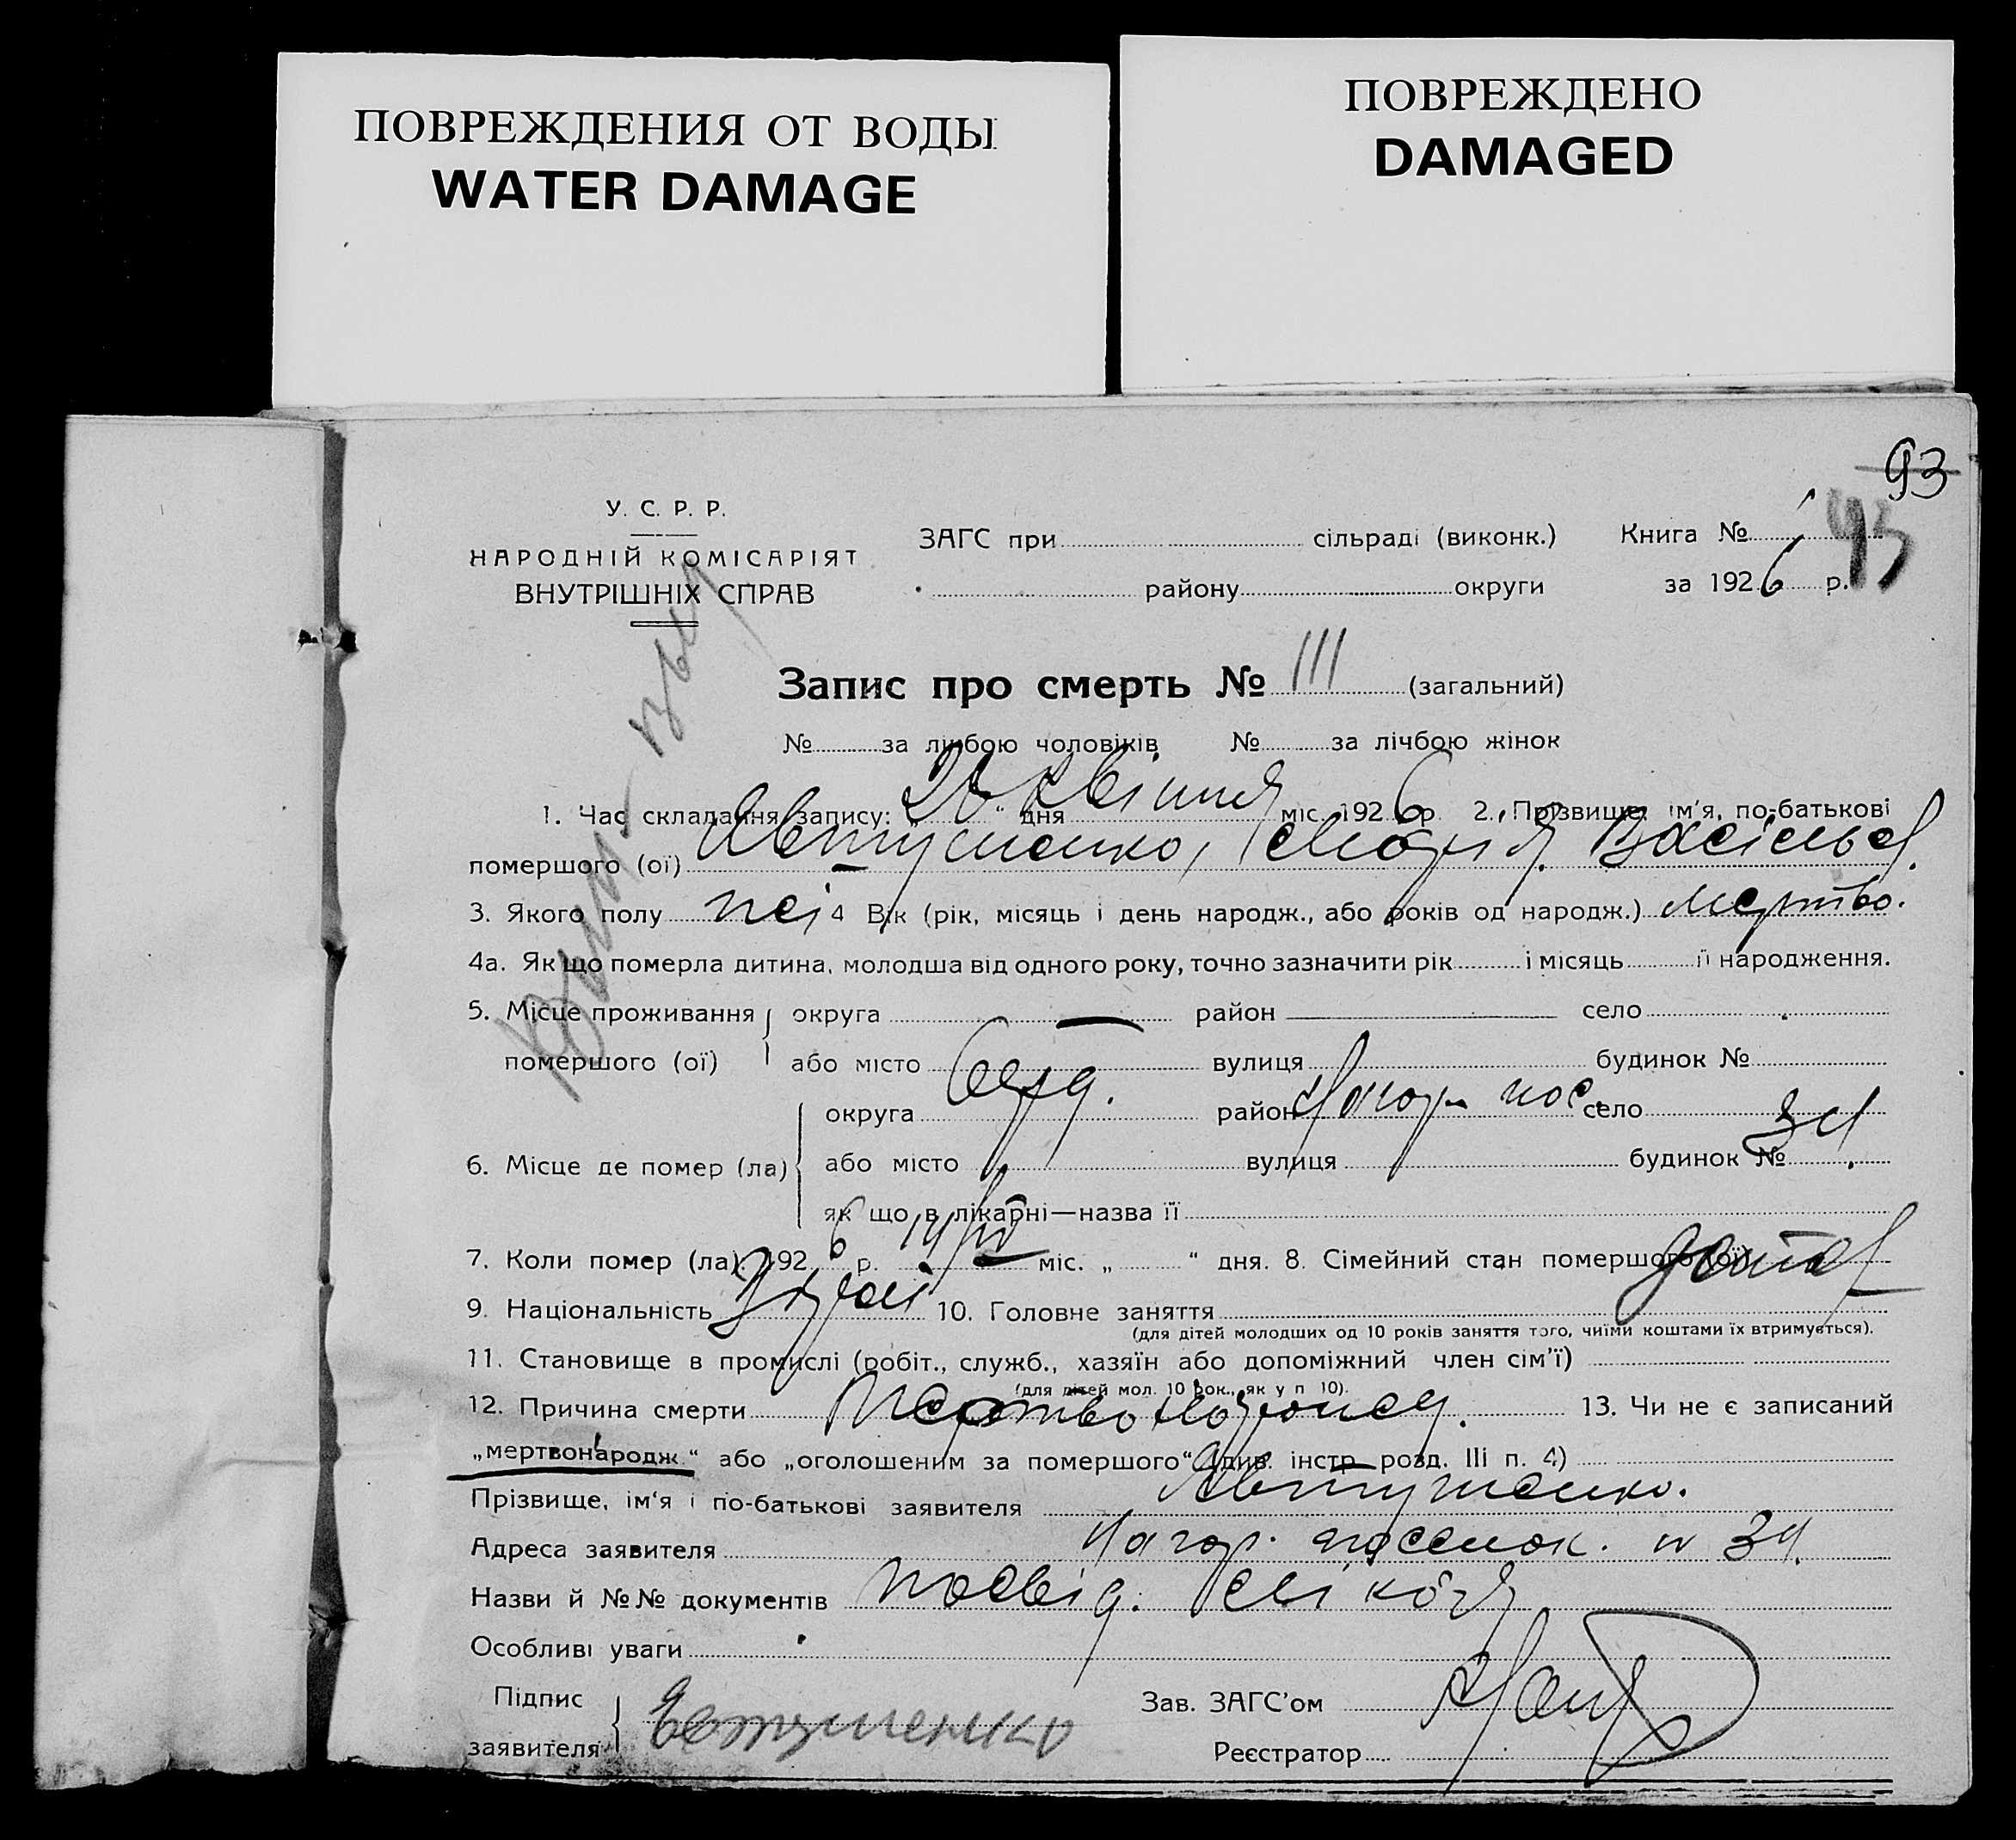 ПОВРЕЖДЕНИЯ ОТ ВОДЫ
WATER DAMAGE
ПОВРЕЖДЕНО
DAMAGED
93
У. С. Р. Р.
НАРОДНІЙ КОМІСАРІЯТ
ВНУТРІШНІХ СПРАВ
ЗАГС при сільраді (виконк.)
району округи
Книга №
за 1926 р.
Запис про смерть № 111 (загальний)
№ за лічбою чоловіків № за лічбою жінок
1. Час складання запису: „ “ дня квітня міс. 1926 р. 2. Прізвище, ім'я, по-батькові
помершого (ої) Автушенко, Марія Васільев.
3. Якого полу 4 Вік (рік, місяць і день народж., або років од народж.) Мертво.
4а. Якщо померла дитина, молодша від одного року, точно зазначити рік і місяць її народження.
5. Місце проживання округа — район село
помершого (ої) або місто вулиця будинок №
6. Місце де помер (ла) округа район Нагор. пос. село
або місто вулиця будинок № 34
як що в лікарні—назва її
7. Коли помер (ла). 1926 р. 14/IV міс. „ “ дня. 8. Сімейний стан помершого (ої)
9. Національність 10. Головне заняття
(для дітей молодших од 10 років заняття того, чиїми коштами їх втримується).
11. Становище в промислі (робіт., служб., хазяїн або допоміжний член сім'ї)
(для дітей мол. 10 рок., як у п 10).
12. Причина смерти 13. Чи не є записаний
„мертвонародж.“ або „оголошеним за помершого“ (див. інстр. розд. III п. 4)
Прізвище, ім'я і по-батькові заявителя Автушенко.
Адреса заявителя Нагор. поселок. № 34.
Назви й №№ документів посвід. лікаря
Особливі уваги
Підпис
заявителя Евтушенко
Зав. ЗАГС'ом
Реєстратор